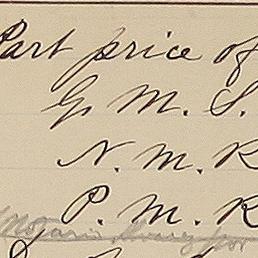 Part price of
G. M. S.
N. M. R
P. M. R